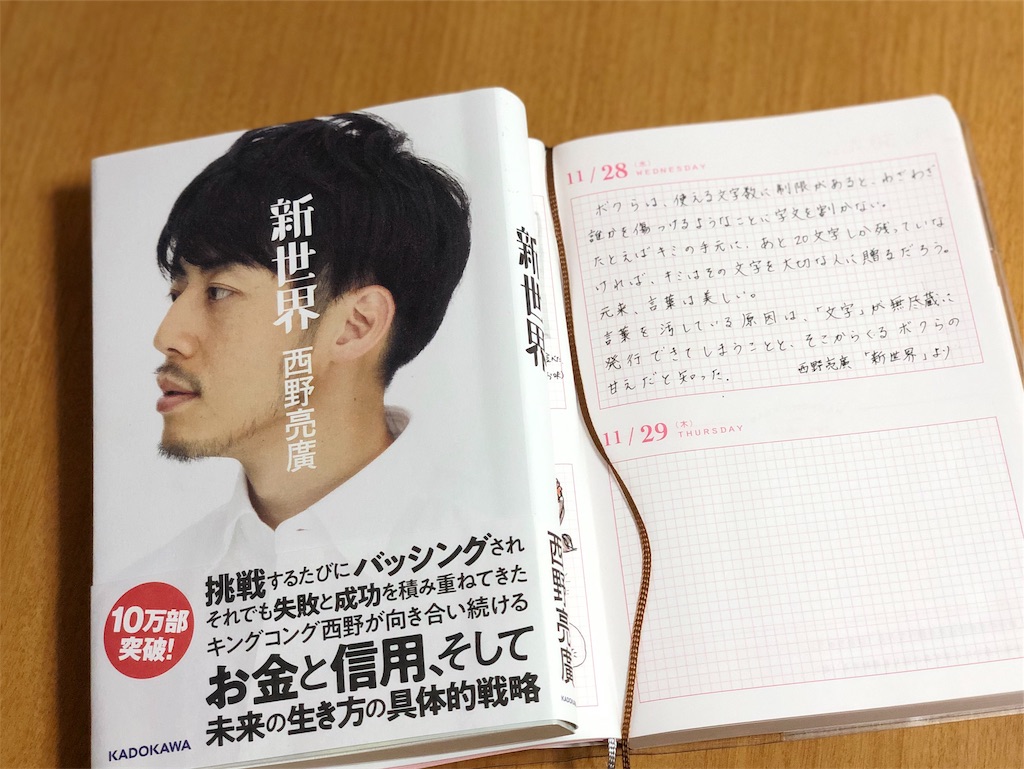 新世界
西野亮廣
10万部
突破!
挑戦するたびにバッシングされ
それでも失敗と成功を積み重ねてきた
キングコング西野が向き合い続ける
お金と信用、そして
未来の生き方の具体的戦略
KADOKAWA
新世界
西野亮廣
KADOKAWA
11/28 (水) WEDNESDAY
ボクらは、使える文字数に制限があると、わざわざ
誰かを傷つけるようなことに字文を割かない。
たとえばキミの手元に、あと20文字しか残っていな
ければ、キミはその文字を大切な人に贈るだろう。
元来、言葉は美しい。
言葉を汚している原因は、「文字」が無尽蔵に
発行できてしまうことと、そこからくるボクらの
甘えだと知った. 西野亮廣 「新世界」より
11/29 (木) THURSDAY